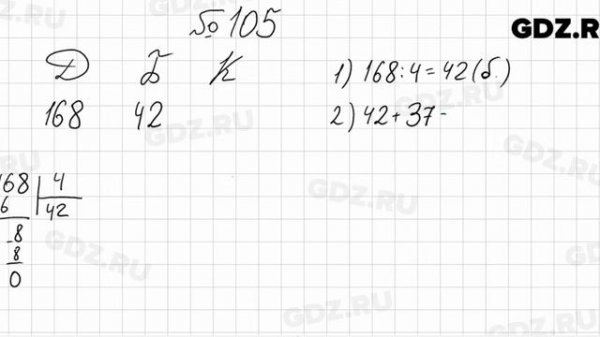 № 105
GDZ.R
Д Б К
168 42
1) 168:4=42(б.)
2) 42+37-
168 4
6 42
-8
8
0
GDZ.RU
GDZ.RU
GDZ.RU
GDZ.RU
GDZ.RU